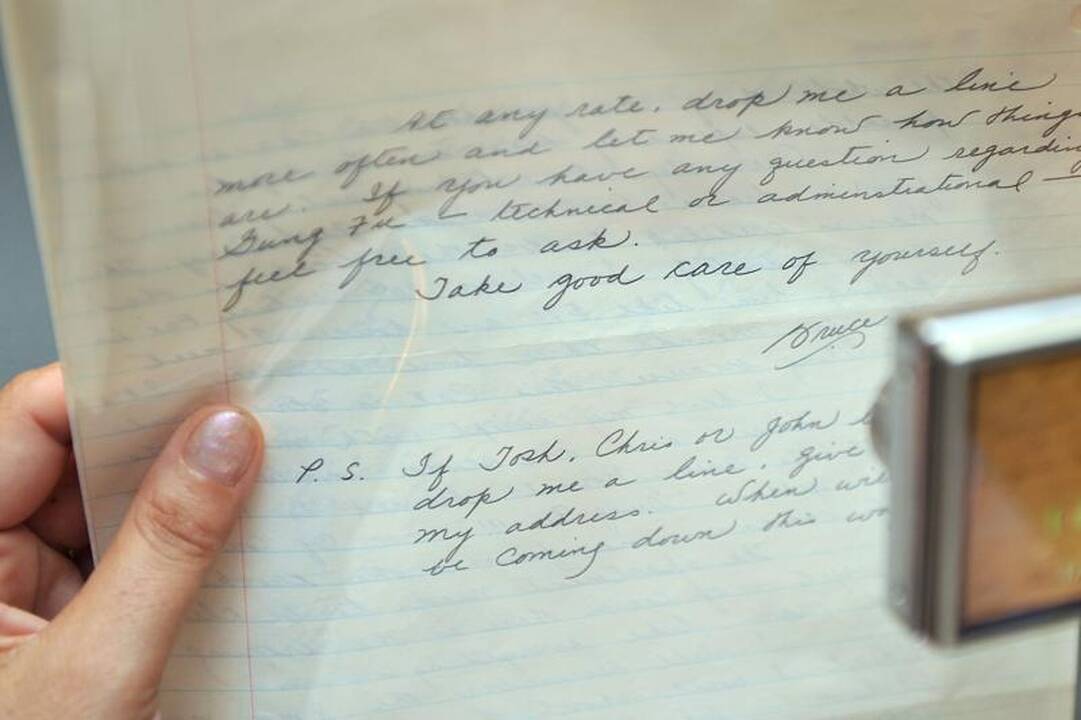 At any rate, drop me a line
more often and let me know how things
are. If you have any question regarding
Gung Fu — technical or adminstrational —
feel free to ask.
Take good care of yourself.
Bruce
P. S. If Tosh, Chris or John
drop me a line, give
my address. When will
be coming down this